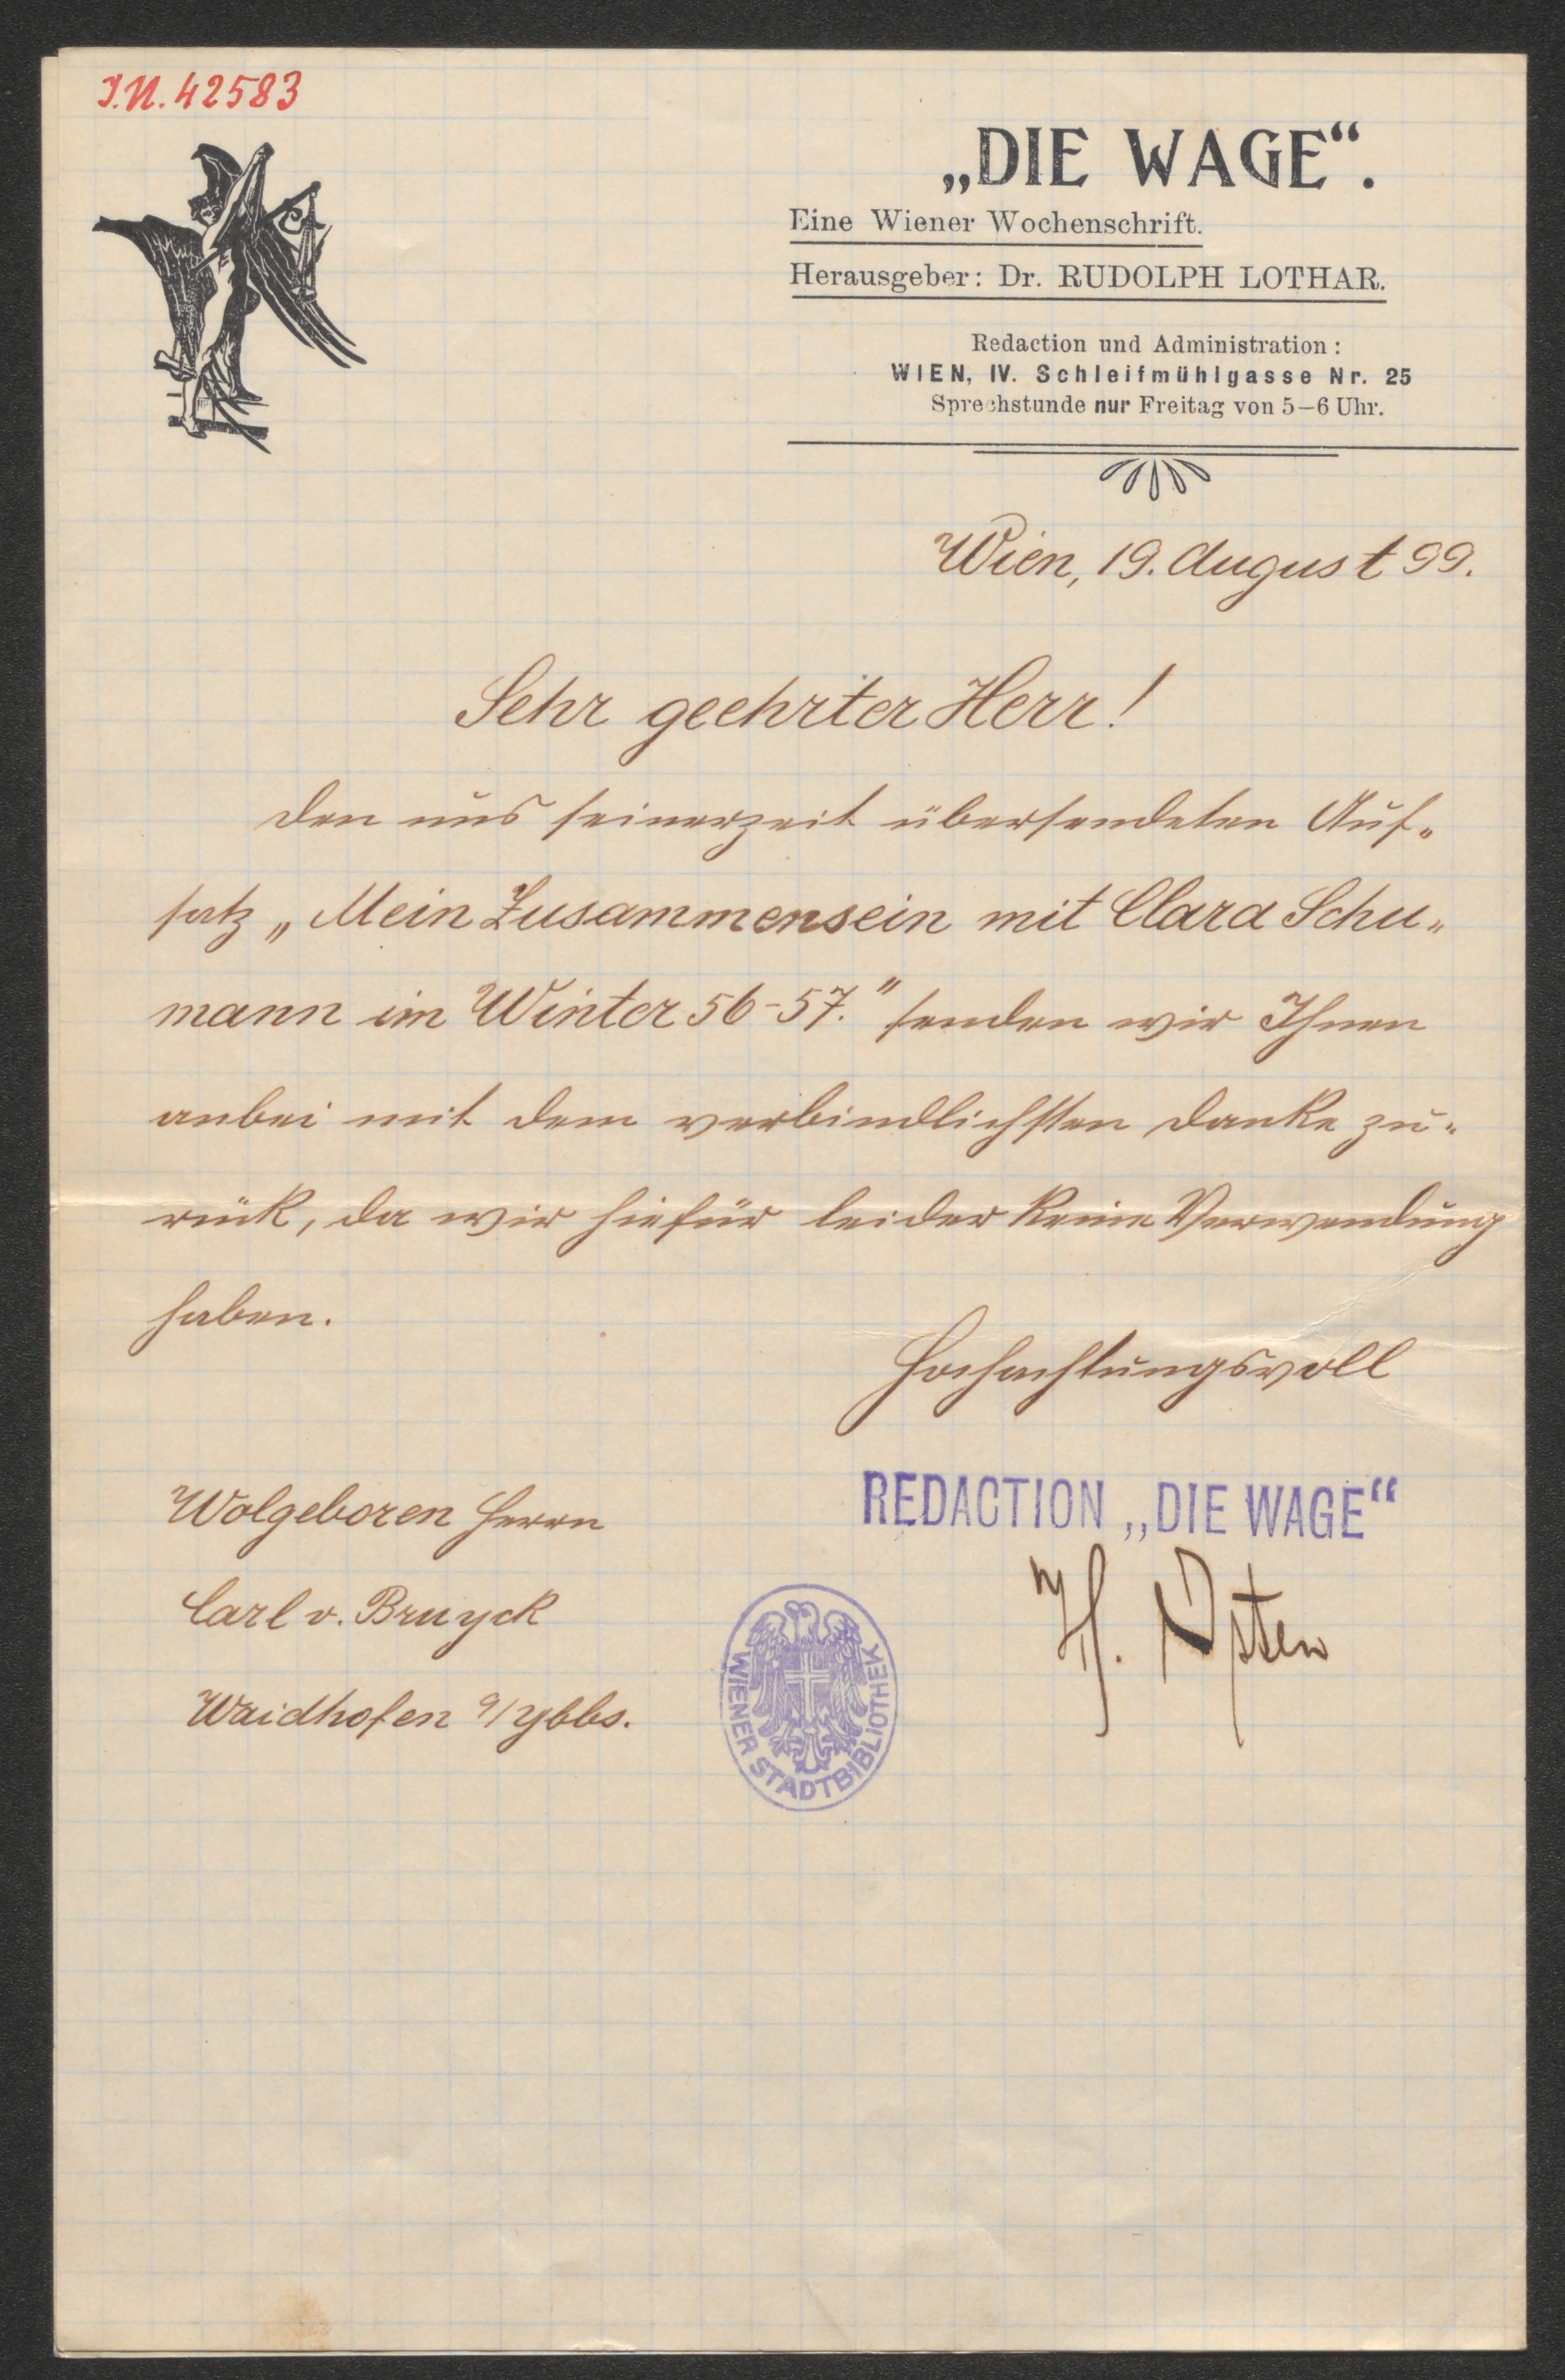 J.N. 42583
„DIE WAGE“.
Eine Wiener Wochenschrift.
Herausgeber: Dr. RUDOLPH LOTHAR.
Redaction und Administration:
WIEN, IV. Schleifmühlgasse Nr. 25
Sprechstunde nur Freitag von 5–6 Uhr.
Wien, 19. August 99.
Sehr geehrter Herr!
den uns seinerzeit übersendeten Auf-
satz „Mein Zusammensein mit Clara Schu-
mann im Winter 56-57." senden wir Ihnen
anbei mit dem verbindlichsten Danke zu-
rück, da wir hiefür leider keine Verwendung
haben.
Hochachtungsvoll
REDACTION „DIE WAGE“
Wolgeboren Herrn
Carl v. Bruyck
Waidhofen a/Ybbs.
WIENER STADTBIBLIOTHEK